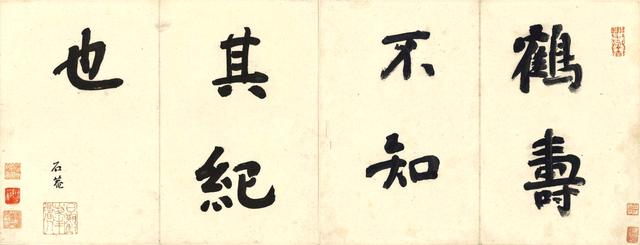 鶴壽
不知
其紀
也
石菴